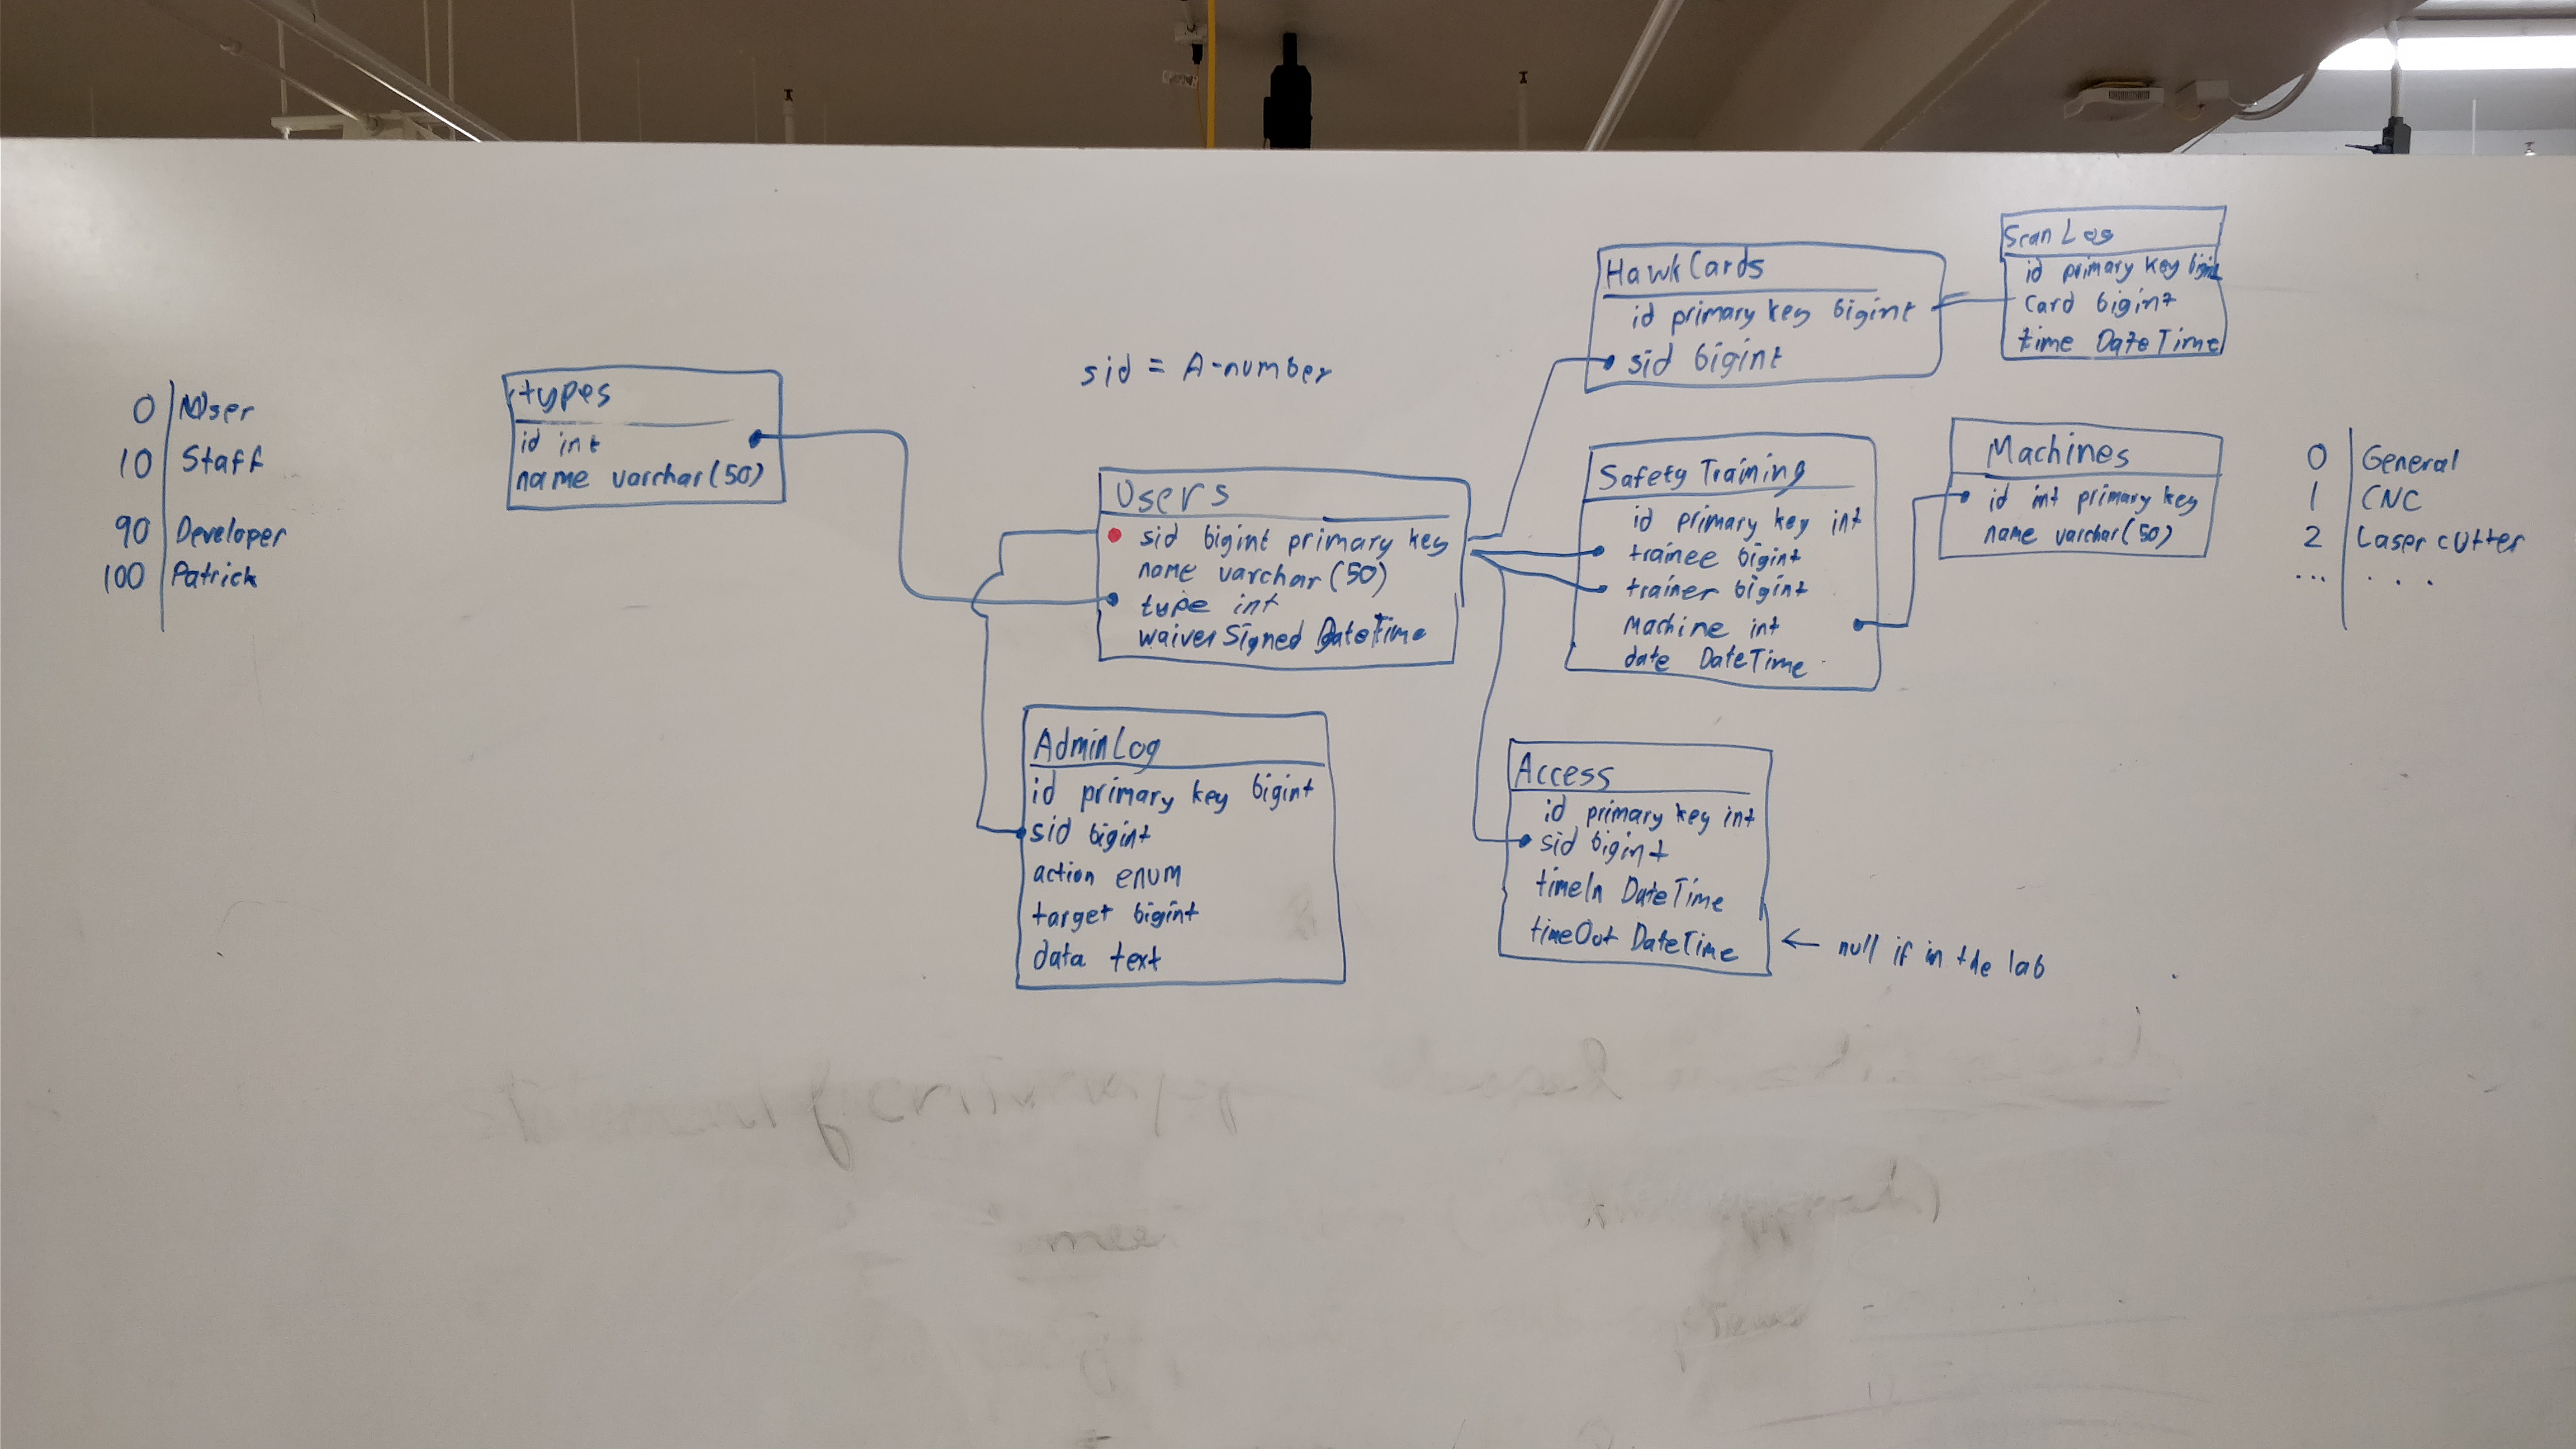 0 User
10 Staff
90 Developer
100 Patrick
types
id int
name varchar(50)
sid = A-number
Users
sid bigint primary key
name varchar(50)
type int
waiverSigned DateTime
AdminLog
id primary key bigint
sid bigint
action enum
target bigint
data text
HawkCards
id primary key bigint
sid bigint
Scan Log
id primary key bigint
card bigint
time DateTime
Safety Training
id primary key int
trainee bigint
trainer bigint
Machine int
date DateTime
Machines
id int primary key
name varchar(50)
0 General
1 CNC
2 Laser cutter
... ...
Access
id primary key int
sid bigint
timeIn DateTime
timeOut DateTime ← null if in the lab